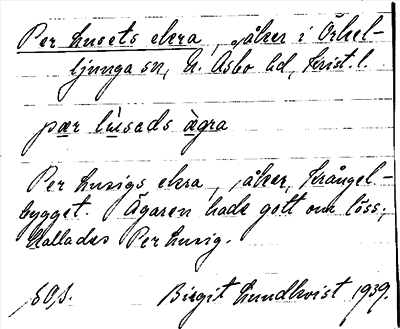 Per lusets ekra, åker i Örkel-
ljunga sn, N. Åsbo hd, Krist. l.
pær lùsads àgra
Per lusigs ekra, åker, Krångel-
bygget. Ägaren hade gott om löss;
kallades Per lusig.
Birgit Lundkvist 1939.